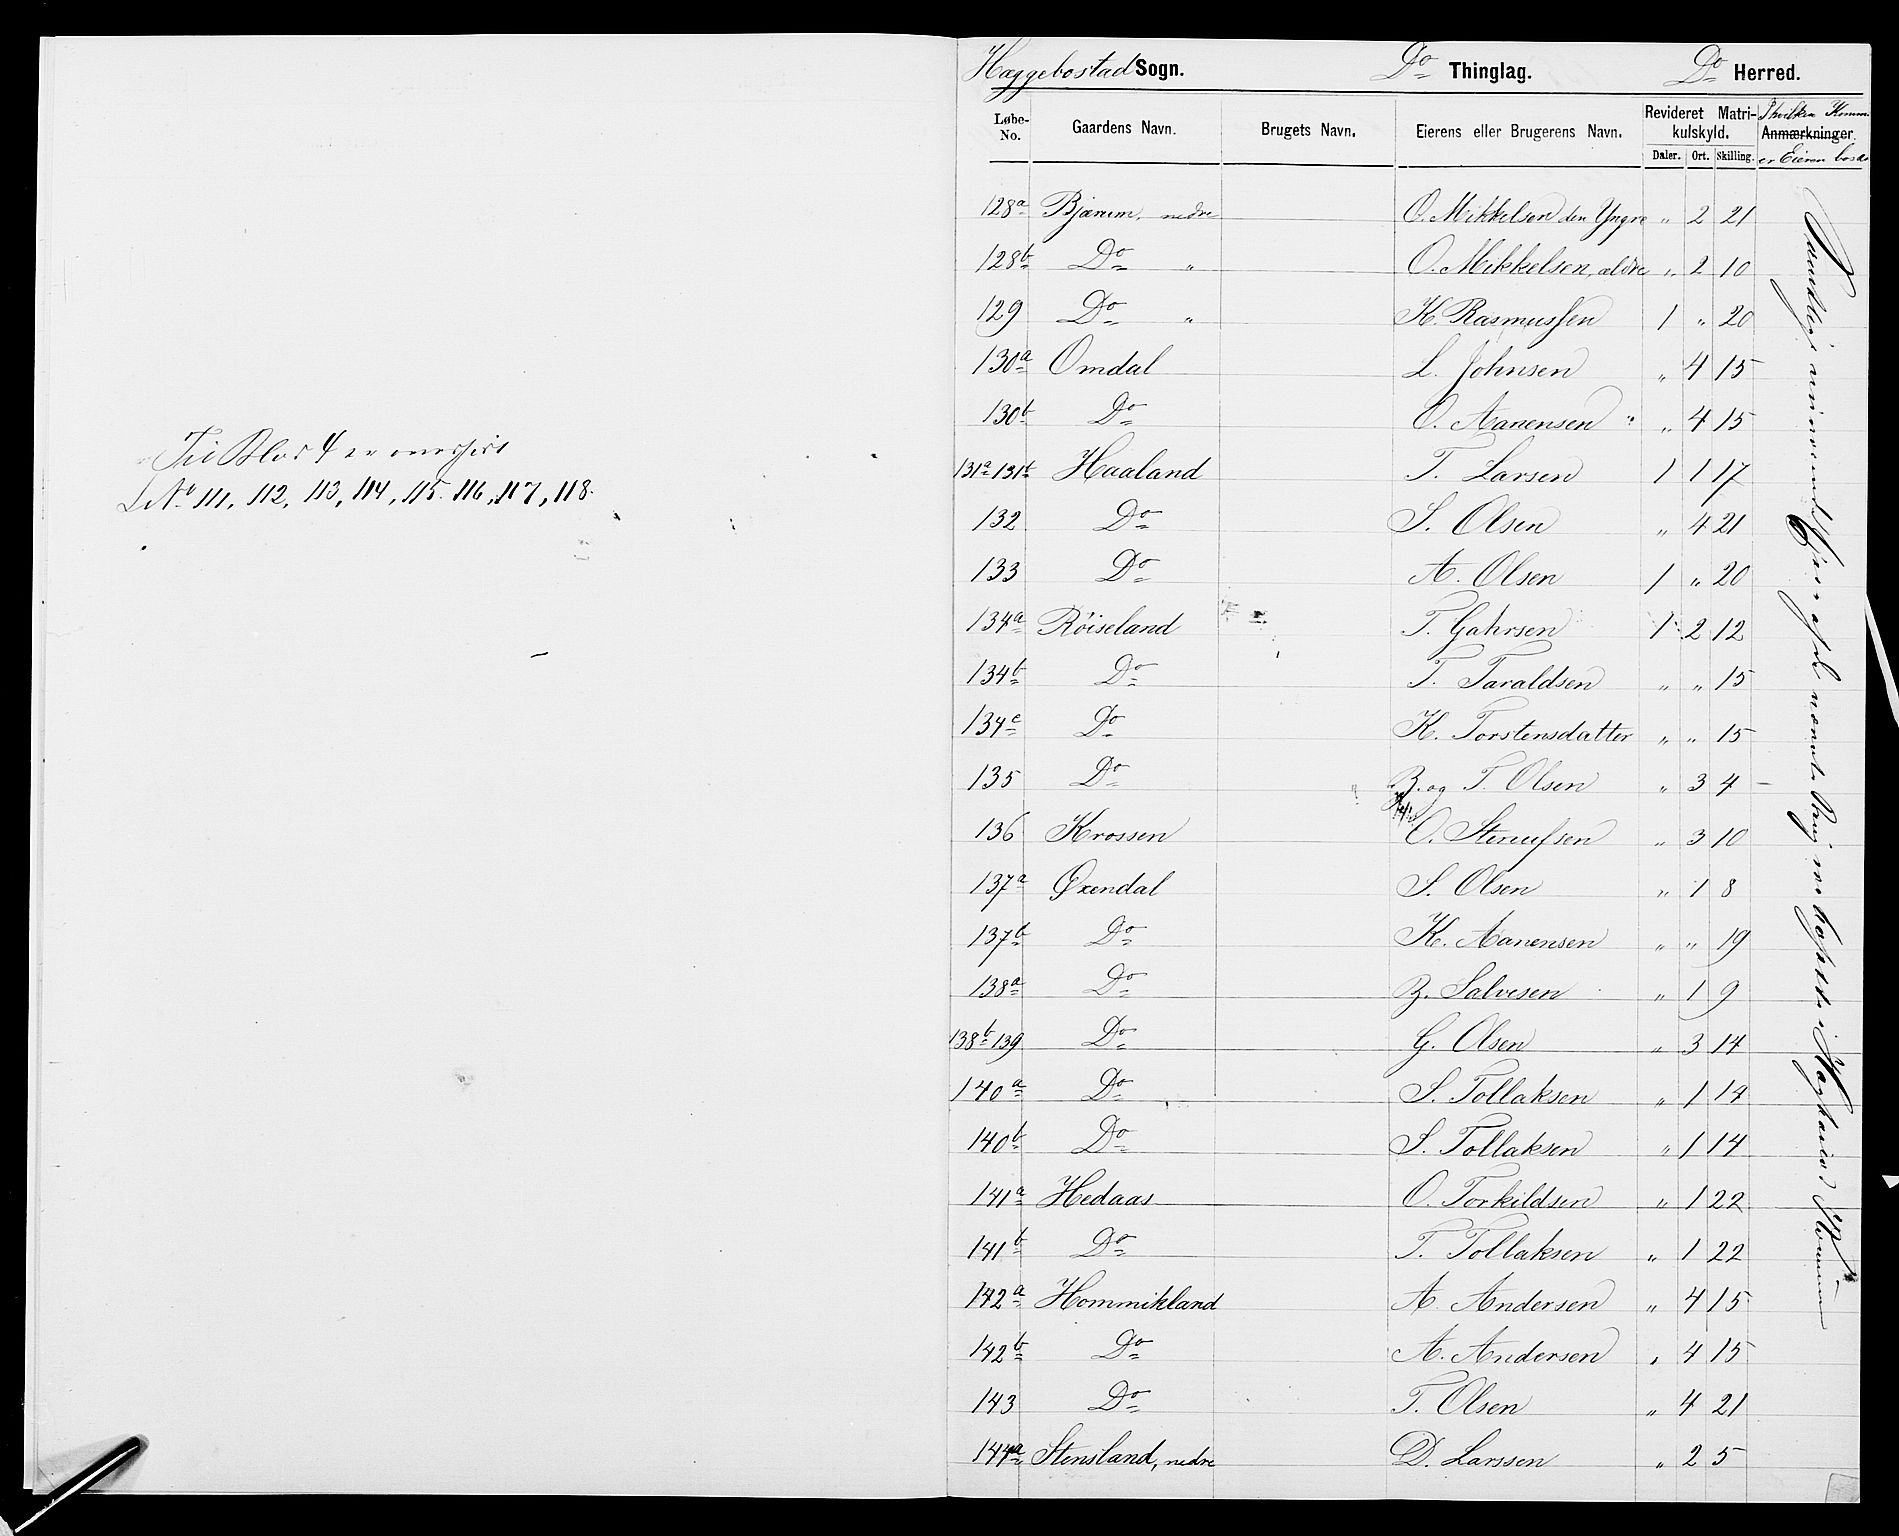 Til Blad 4 er
L. No 111, 112, 113, 114, 115. 116, 117, 118.
Hæggebostad Sogn. Do Thinglag. Do Herred.
Løbe-No. Gaardens Navn. Brugets Navn. Eierens eller Brugerens Navn. Revideret Matrikulskyld. I hvilken Komm. Anmærkninger. er Eieren bosat
Daler. Ort. Skilling.
128a Bjærum, nedre O. Mikkelsen den Yngre " 2 21
128b Do " O. Mikkelsen, ældre " 2 10
129 Do " K. Rasmussen 1 " 20
130a Omdal L. Johnsen " 4 15
130b Do O. Aanensen " " 4 15
131a 131b Haaland T. Larsen 1 1 17
132 Do S. Olsen " 4 21
133 Do A. Olsen 1 " 20
134a Röiseland T. Gahrsen 1 2 12
134b Do T. Taraldsen " " 15
134c Do K. Torstensdatter " " 15
135 Do B. og T. Olsen " 3 4 –
136 Krossen O. Stenufsen " 3 10
137a Øxendal S. Olsen " 1 8
137b Do K. Aanensen " " 19
138a Do B. Salvesen " 1 9
138b 139 Do G. Olsen " 3 14
140a Do S. Tollaksen " 1 14
140b Do S. Tollaksen " 1 14
141a Hedaas O. Torkildsen " 1 22
141b Do T. Tollaksen " 1 22
142a Hommikland A. Andersen " 4 15
142b Do A. Andersen " 4 15
143 Do T. Olsen " 4 21
144a Stensland, nedre D. Larssen " 2 5
Samtlige af de nævnte Brug